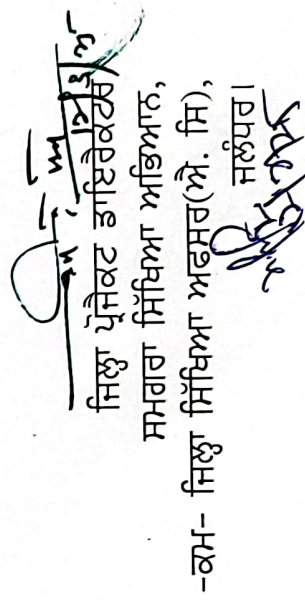 ਜਿਲ੍ਹਾ ਪ੍ਰੋਜੈਕਟ ਡਾਇਰੈਕਟਰ
ਸਮਗਰਾ ਸਿੱਖਿਆ ਅਭਿਆਨ,
-ਕਮ- ਜਿਲ੍ਹਾ ਸਿੱਖਿਆ ਅਫਸਰ(ਐ. ਸਿ),
ਜਲੰਧਰ।